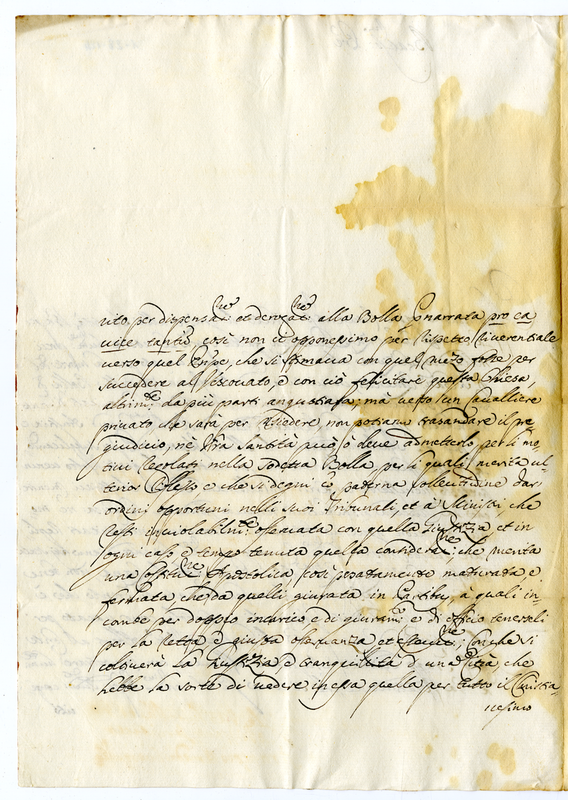 vito, per dispensat.ne et derogat.ne alla Bolla narrata pro ea
vice tantu, così non ci opponessimo per rispetto riverentiale
verso quel, che si stimava con quel mezo fosse per
succedere al Vescovato, e con ciò felicitare questa Chiesa,
altrim.te da più parti angustiata; mà verso un Cavalliere
privato che sarà per risiedere, non potiamo trasandare il pre
giudicio, nè Vra Santità può, ò deve admetterlo per li mo
tivi regolati nella sodetta Bolla, per li quali merita ul
terior riflesso e che si degni co paterna sollecitudine dar
ordini opportuni nelli suoi Tribunali, et à Ministri che
resti inviolabilm.te osservata con quella giustizza et in
ogni caso e tempo tenuta quella consider.ne; che merita
una Constitut.ne Apostolica così pesatamente maturata, e
fermata che da quelli giurata in à quali in
combe per doppio incarico, e di giuram.to e di officio tenerseli
per la retta e giusta osservanza et; con che si
coltiverà la giustizza e tranquillità d'una Città che
hebbe la sorte di vedere in essa quella per tutto il Cristia
nesimo